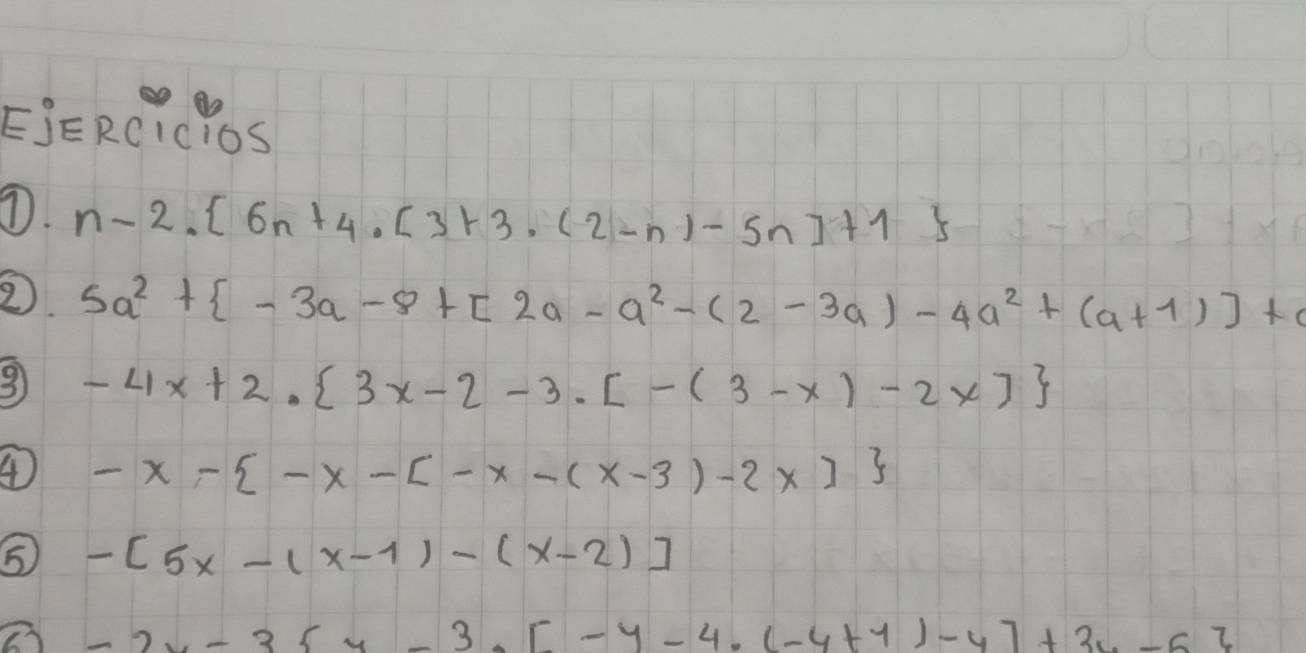 EjERCiCiOS
①. n-2.{6n+4.[3+3.(2-n)-5n]+1}
②. 5a²+{-3a-8+[2a-a²-(2-3a)-4a²+(a+1)]+
③ -4x+2.{3x-2-3.[-(3-x)-2x]}
④ -x-{-x-[-x-(x-3)-2x]}
⑤ -[5x-(x-1)-(x-2)]
⑥ -3.[-y-4.(-y+1)-y]+3y